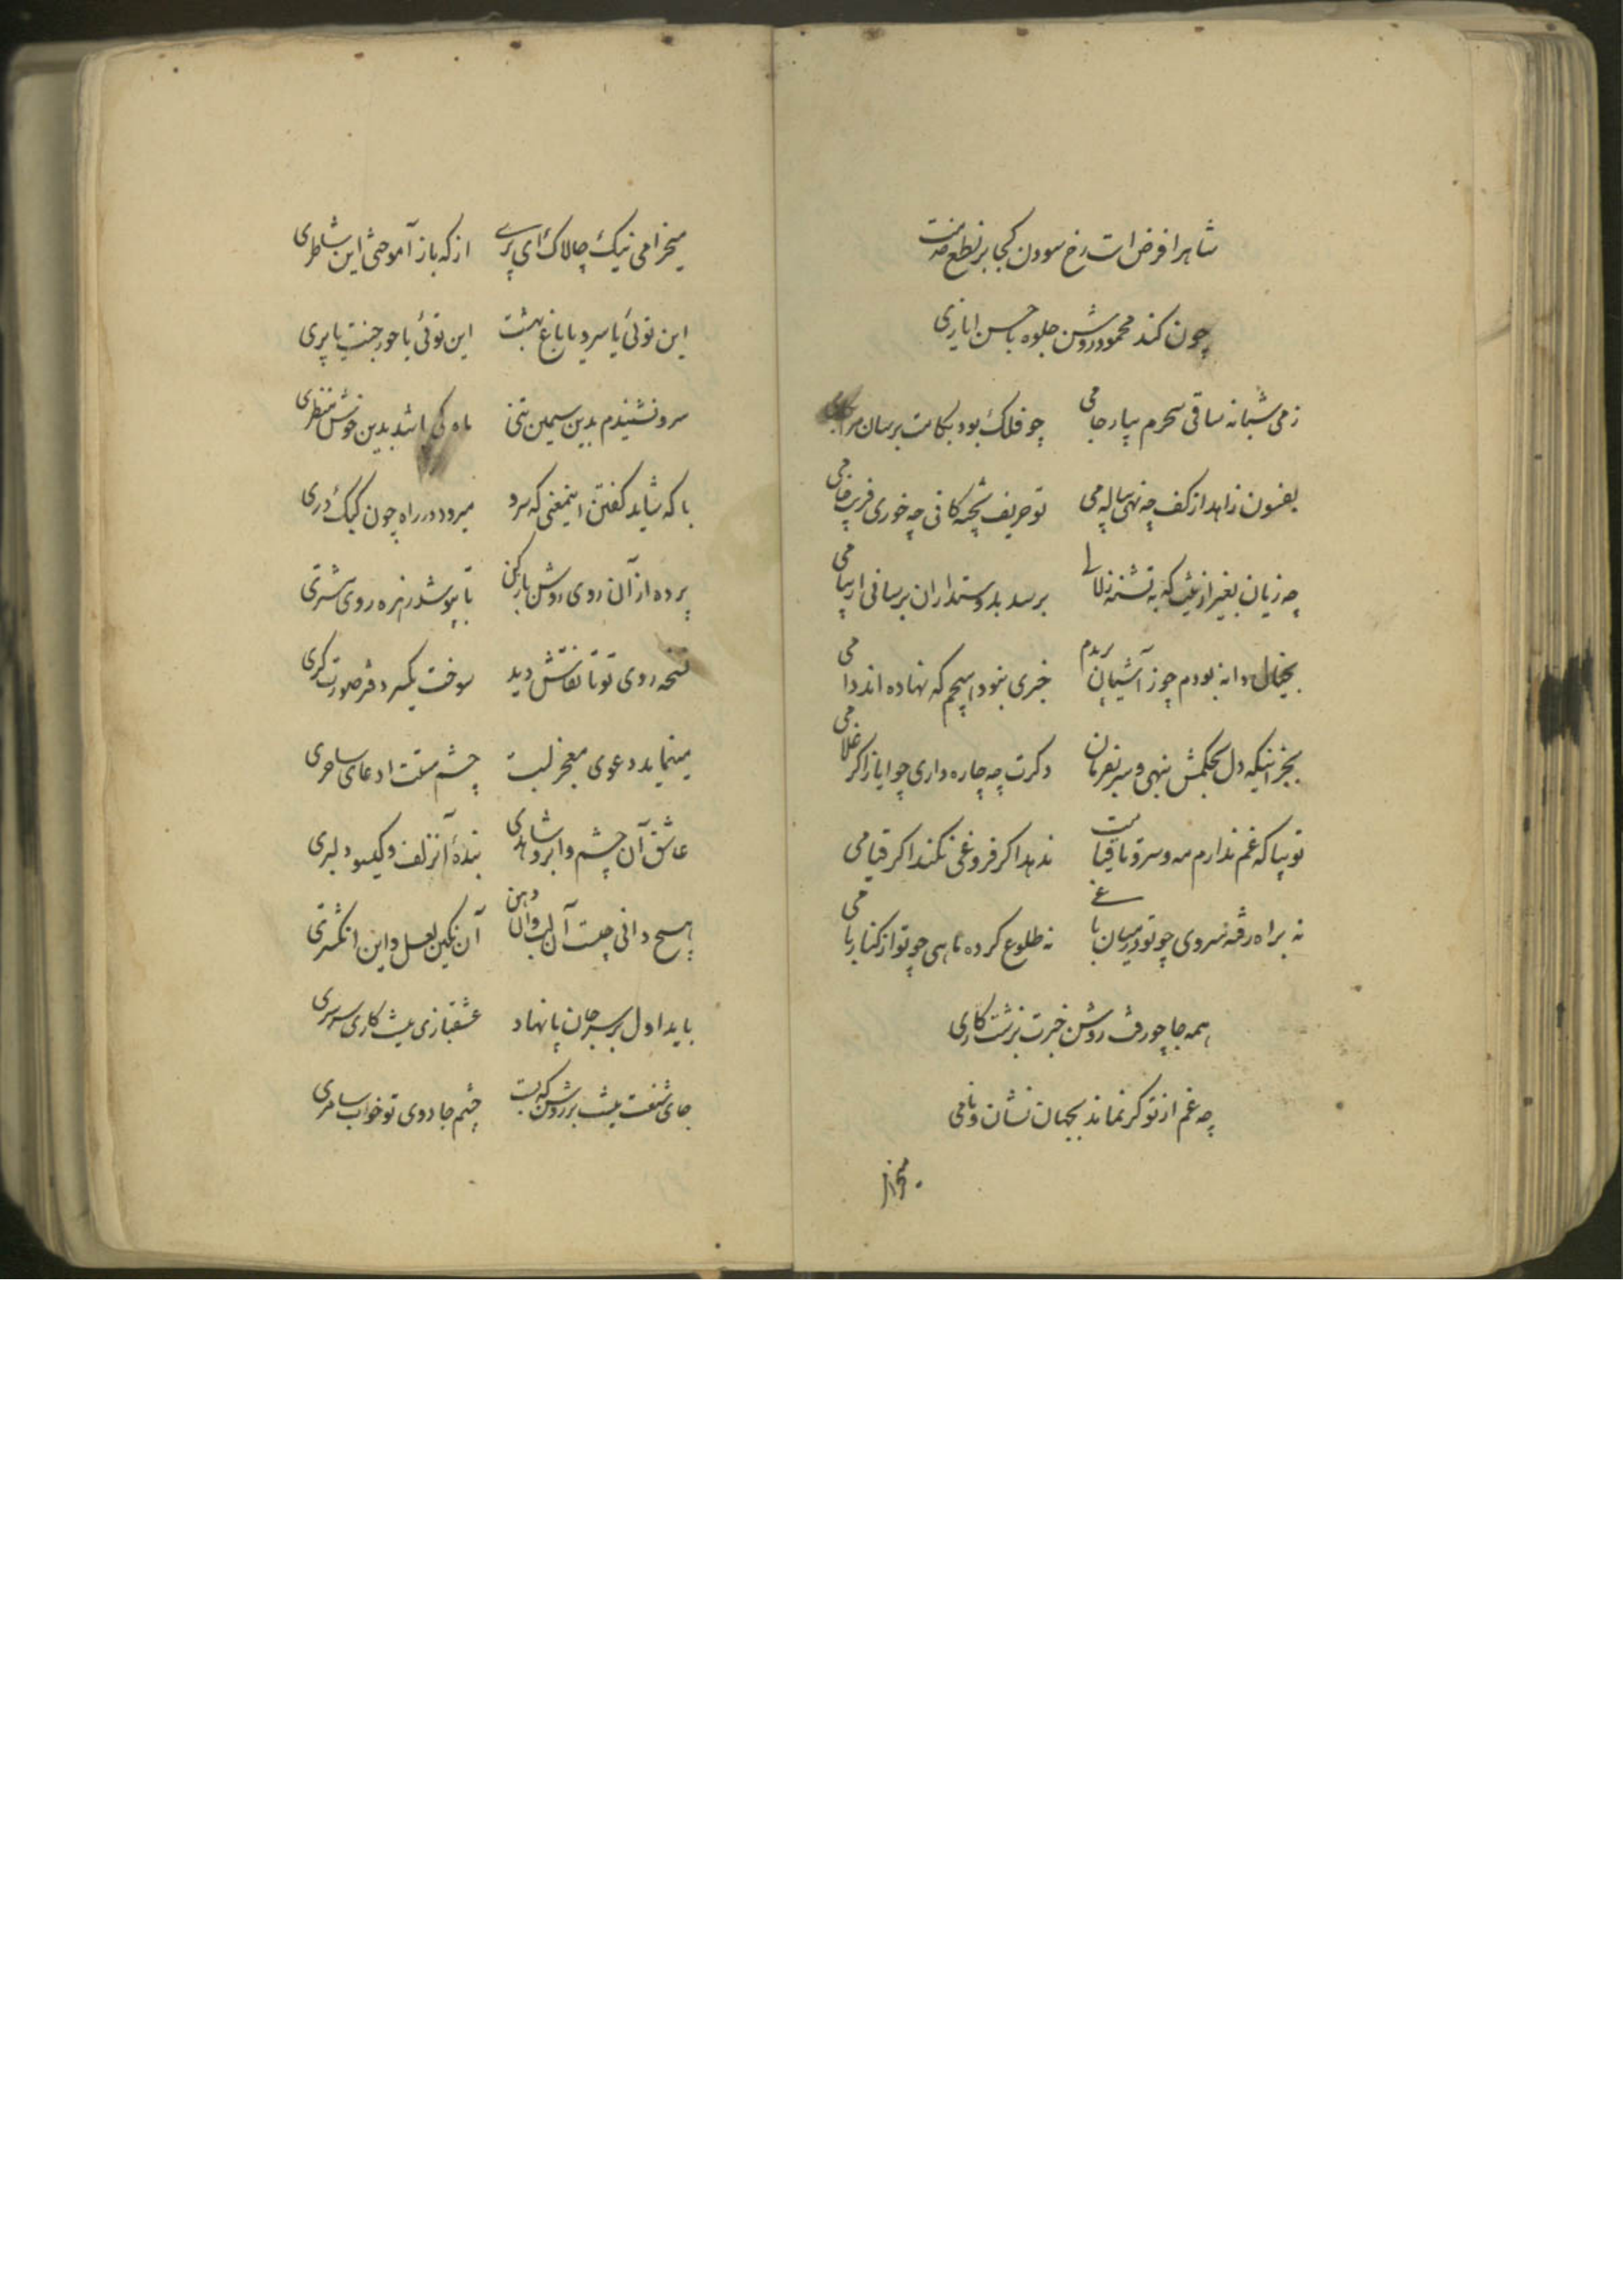 شاهرا فرض است رخ سودن کجا بر نطع خدمت
چون کند محمود روش جلوه با حسن ایازی
ز می شبانه ساقی سحرم بیار جامی چو فلک بود بکامت برسان مرا
بفسون زاهد از کف چه نهی پیاله می تو حریف پخته کانی چه خوری فریب خامی
چه زیان بغیر ازینت که به تشنه زلالی برسد بدوستداران برسانی ار پیامی
بخیال دانه بودم چو ز آشیان پریدم خبری نبود هیچم که نهاده اند دامی
بجز اینکه دل بحکمش بنهی و سر بفرمان دگرت چه چاره داری چو ایاز اگر غلامی
تو بیا که غم ندارم مه و سرو تا قیامت ندهد اگر فروغی نکند اگر قیامی
نه براه رفته سروی چو تو در میان باغی نه طلوع کرده ماهی چو تو از کنار بامی
همه جا چو رفت روشن خبرت بزشت کاری
چه غم از تو گر نماند بجهان نشان و نامی
میخرامی
میخرامی نیک چالاک ای پری از که باز آموختی این شاطری
این توئی یا سرو یا باغ بهشت این توئی یا حور جنت یا پری
سرو نشنیدم بدین سیمین تنی ماه کی باشد بدین خوش منظری
با که شاید گفتن اینمعنی که سرو میرود در راه چون کبک دری
پرده از آن روی روشن باز کن تا بپوشد زهره روی مشتری
نسخه روی تو تا نقاش دید سوخت یکسر دفتر صورت گری
مینماید دعوی معجز لبت چشم مستت ادعای ساحری
عاشق آن چشم و ابرو شاهدی بندهٔ آنزلف و گیسو دلبری
هیچ دانی چیست آن لب وان دهن آن نگین لعل و این انگشتری
باید اول بر سر جان پا نهاد عشقبازی نیست کاری سرسری
جای شنعت نیست بر روشن که بست چشم جادوی تو خواب سامری